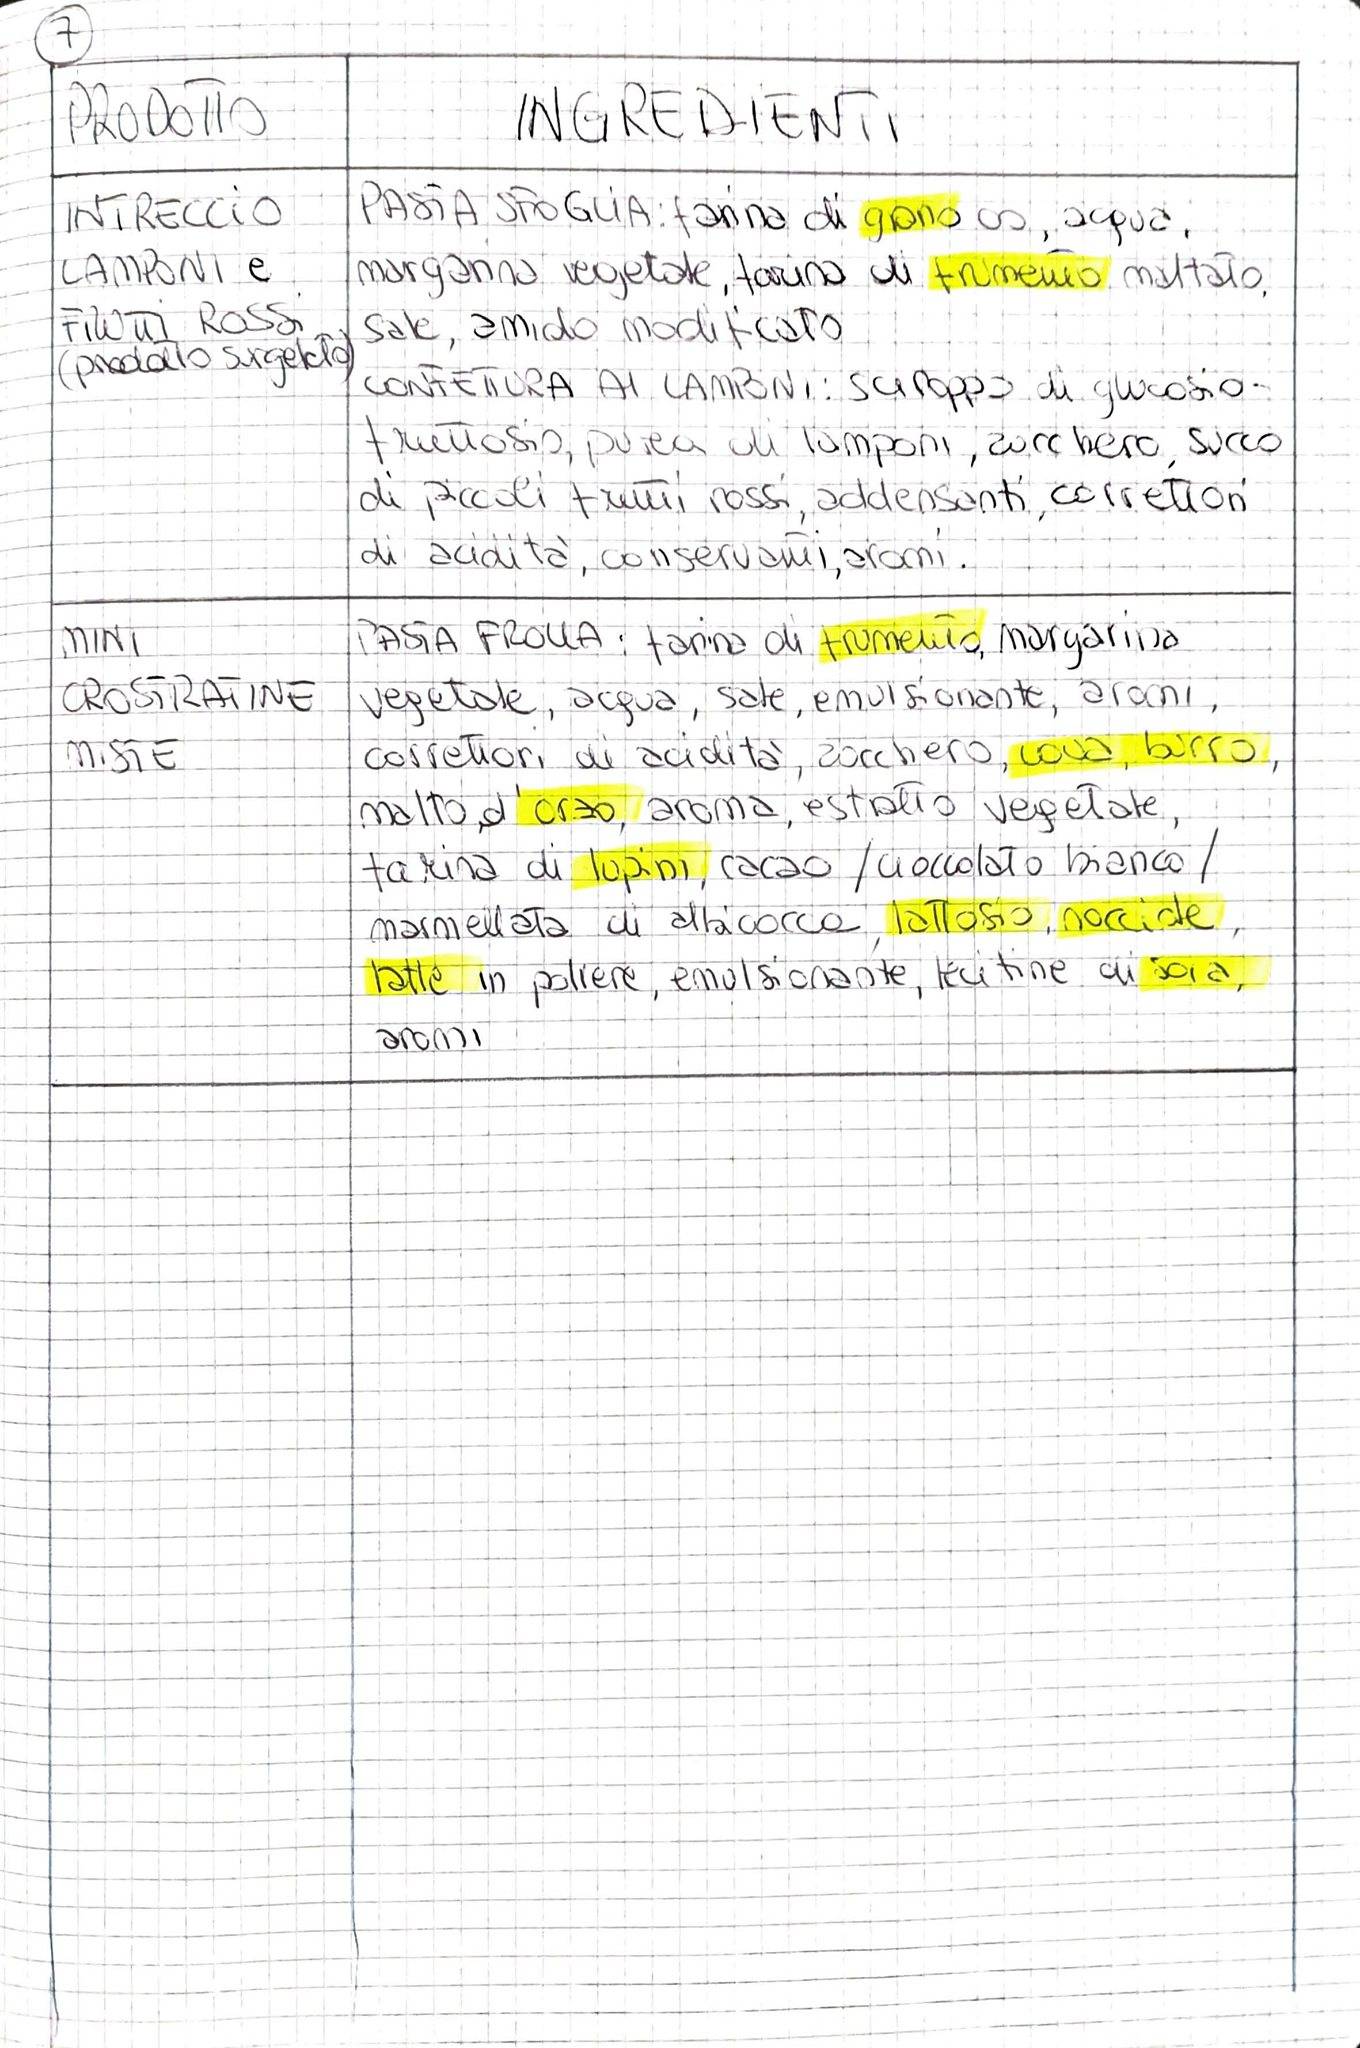 7
PRODOTTO
INGREDIENTI
INTRECCIO
LAMPONI e
FRUTTI ROSSI
(prodotto surgelato)
PASTA SFOGLIA: farina di grano 00, acqua,
margarina vegetale, farina di frumento maltato,
sale, amido modificato
CONFETTURA AI LAMPONI: sciroppo di glucosio-
fruttosio, purea di lamponi, zucchero, succo
di piccoli frutti rossi, addensanti, correttori
di acidità, conservanti, aromi.
MINI
CROSTRATINE
MISTE
PASTA FROLLA: farina di frumento, margarina
vegetale, acqua, sale, emulsionante, aromi,
correttori di acidità, zucchero, uova, burro,
malto d'orzo, aroma, estratto vegetale,
farina di lupini, cacao / cioccolato bianco /
marmellata di albicocca, lattosio, nocciole,
latte in polvere, emulsionante, lecitine di soia,
aromi